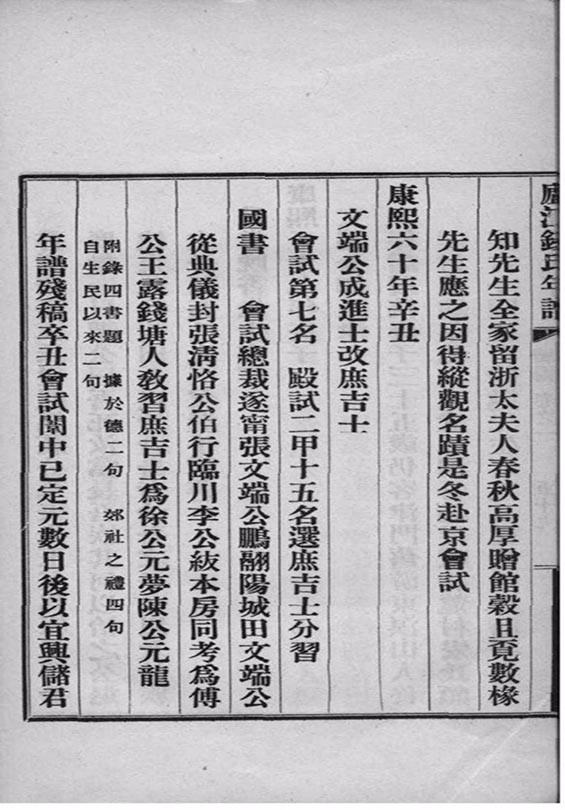 廬江錢氏年譜
知先生全家留浙太夫人春秋高厚贈館穀且覓數椽
先生應之因得縱觀名蹟是冬赴京會試
康熙六十年辛丑
文端公成進士改庶吉士
會試第七名　殿試二甲十五名選庶吉士分習
國書　會試總裁遂甯張文端公鵬翮陽城田文端公
從典儀封張淸恪公伯行臨川李公紱本房同考爲傅
公王露錢塘人敎習庶吉士爲徐公元夢陳公元龍
附錄四書題　據於德二句　郊社之禮四句
自生民以來二句
年譜殘稿辛丑會試闈中已定元數日後以宜興儲君